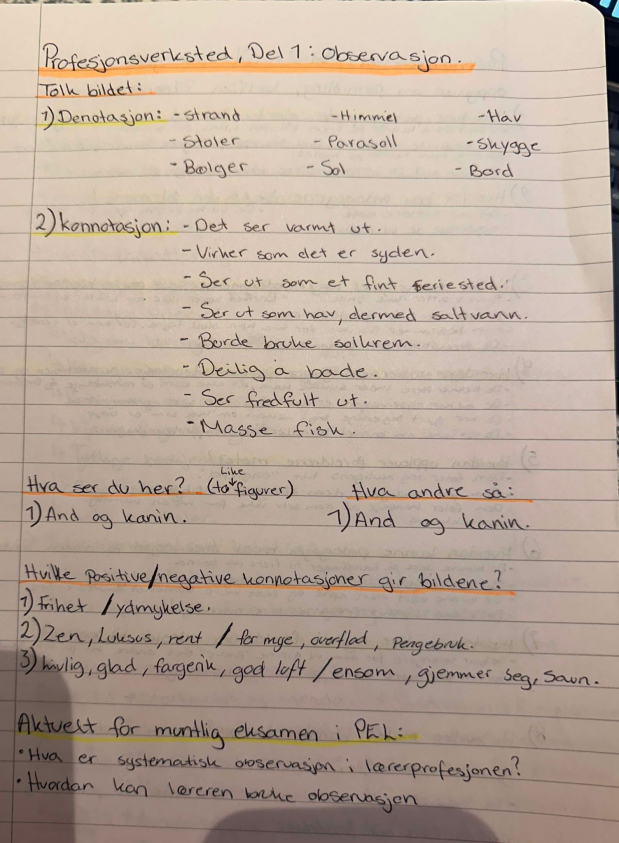 Profesjonsverksted, Del 1: Observasjon.
Tolk bildet:
1) Denotasjon: - strand - Himmel - Hav
- Stoler - Parasoll - Skygge
- Bølger - Sol - Bord
2) konnotasjon: - Det ser varmt ut.
- Virker som det er syden.
- Ser ut som et fint feriested.
- Ser ut som hav, dermed saltvann.
- Burde bruke solkrem.
- Deilig å bade.
- Ser fredfult ut.
- Masse fisk.
Like
Hva ser du her? (to figurer) Hva andre så:
1) And og kanin. 1) And og kanin.
Hvilke positive/negative konnotasjoner gir bildene?
1) Frihet / ydmykelse.
2) Zen, Luksus, rent / for mye, overflod, Pengebruk.
3) livlig, glad, fargerik, god luft / ensom, gjemmer seg, Savn.
Aktuelt for muntlig eksamen i PEL:
• Hva er systematisk observasjon i lærerprofesjonen?
• Hvordan kan læreren bruke observasjon